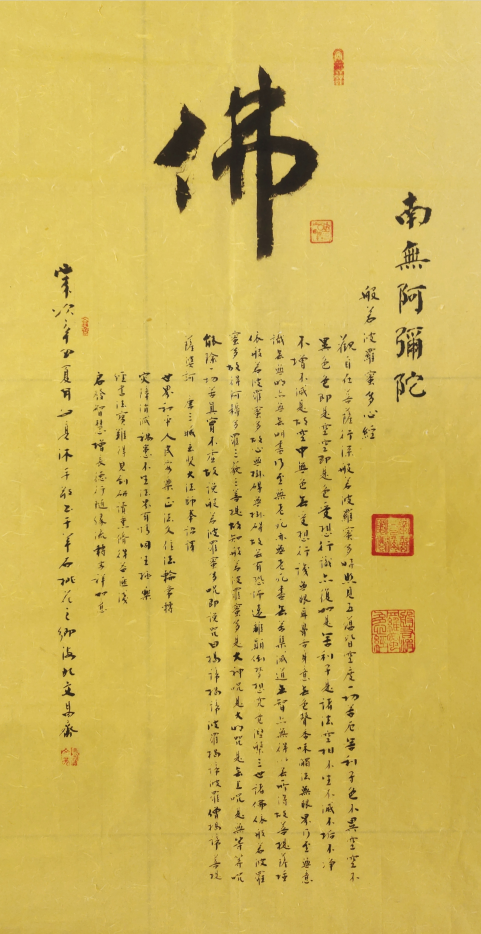 佛
南無阿彌陀
般若波羅蜜多心經
觀自在菩薩行深般若波羅蜜多時照見五蘊皆空度一切苦厄舍利子色不異空空不
異色色即是空空即是色受想行識亦復如是舍利子是諸法空相不生不滅不垢不淨
不增不減是故空中無色無受想行識無眼耳鼻舌身意無色聲香味觸法無眼界乃至無意
識無無明亦無無明盡乃至無老死亦無老死盡無苦集滅道無智亦無得以無所得故菩提薩埵
依般若波羅蜜多故心無罣礙無罣礙故無有恐怖遠離顛倒夢想究竟涅槃三世諸佛依般若波羅
蜜多故得阿耨多羅三藐三菩提故知般若波羅蜜多是大神咒是大明咒是無上咒是無等等咒
能除一切苦真實不虛故說般若波羅蜜多咒即說咒曰揭諦揭諦波羅揭諦波羅僧揭諦菩提
薩婆訶 唐三藏玄奘大法師奉詔譯
世界和平人民安樂正法久住法輪常轉
災障消滅諸惡不生法界有情同生極樂
啟發智慧增長德行隨緣流轉吉祥如意
歲次辛丑夏月沐手敬書于桃花之鄉